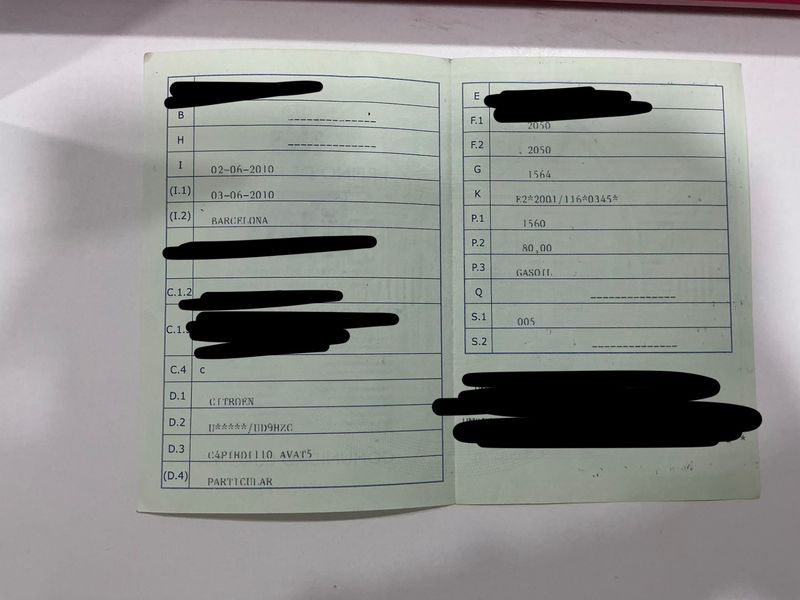 B --------------
H --------------
I 02-06-2010
(I.1) 03-06-2010
(I.2) BARCELONA
C.1.2
C.4 c
D.1 CITROEN
D.2 U*****/UD9HZC
D.3 C4PIHDI110 AVAT5
(D.4) PARTICULAR
E
F.1 2050
F.2 2050
G 1564
K E2*2001/116*0345*
P.1 1560
P.2 80,00
P.3 GASOIL
Q --------------
S.1 005
S.2 --------------